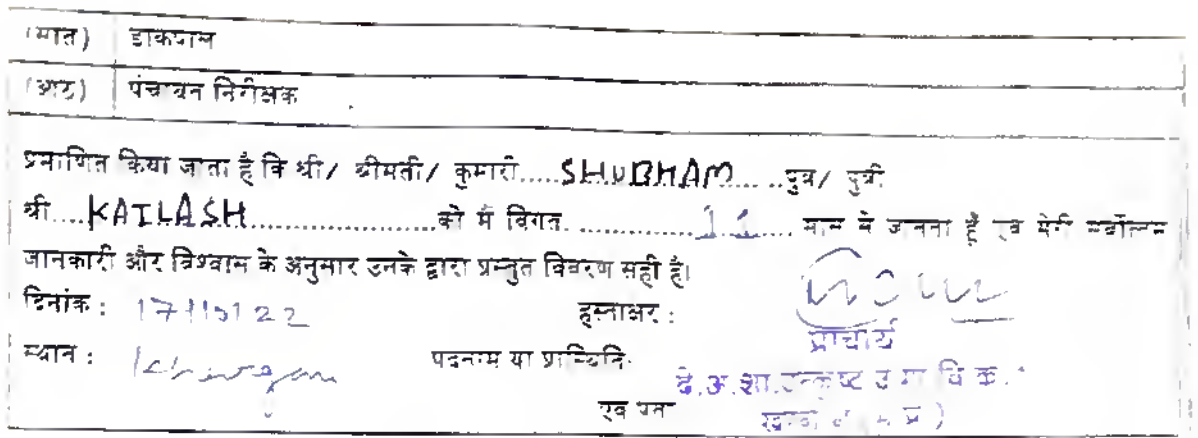 (सात) डाकपाल
(आठ) पंचायत निरीक्षक
प्रमाणित किया जाता है कि श्री/ श्रीमती/ कुमारी.....SHUBHAM.....पुत्र/ पुत्री
श्री....KAILASH....................को मैं विगत. ..............11..... साल से जानता हूँ एवं मेरी सर्वोत्तम
जानकारी और विश्वास के अनुसार उनके द्वारा प्रस्तुत विवरण सही है।
दिनांक : 17/10/22 हस्ताक्षर :
प्राचार्य
स्थान : पदनाम या प्रास्थिति
दे.अ.शा.उत्कृष्ट उ मा वि क्र.
एवं पता